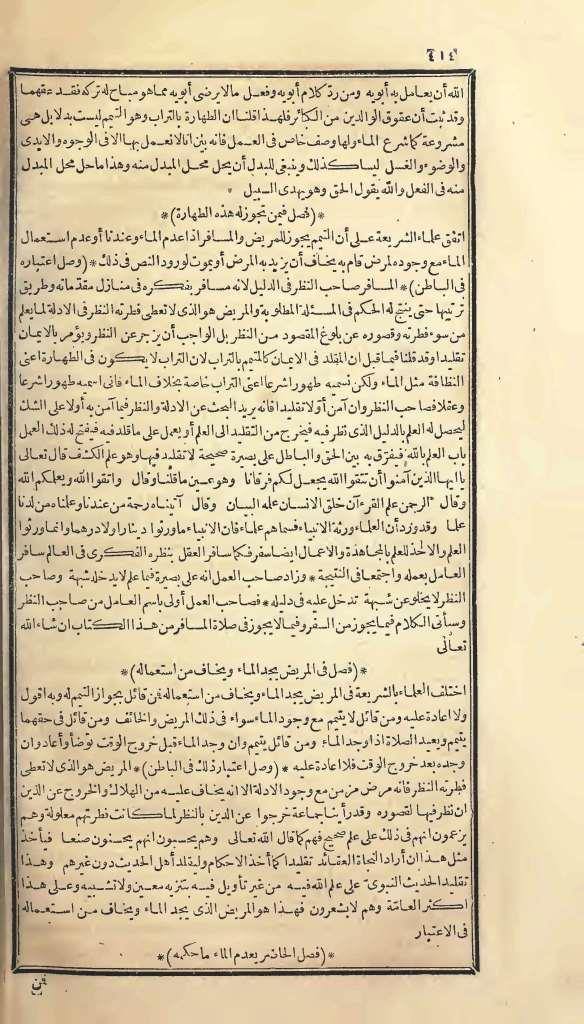 ٤١٤
الله أن يعامل به أبويه ومن ردّ كلام أبويه وفعل مالا يرضى أبويه مما هو مباح له تركه فقد عقهما
وقد ثبت أن عقوق الوالدين من الكبائر فلهذا قلنا ان الطهارة بالتراب وهو التيمم ليست بدلا بل هى
مشروعة كما شرع الماء ولها وصف خاص فى العمل فانه بين انا لا نعمل بها الا فى الوجوه والايدى
والوضوء والغسل ليسا كذلك وينبغى للبدل أن يحل محل المبدل منه وهذا ما حل محل المبدل
منه فى الفعل والله يقول الحق وهو يهدى السبيل *
*(فصل فيمن يجوز له هذه الطهارة)*
اتفق علماء الشريعة على أن التيمم يجوز للمريض والمسافر اذا عدم الماء وعندنا أو عدم استعمال
الماء مع وجوده لمرض قام به يخاف أن يزيد به المرض أو يموت لورود النص فى ذلك *(وصل اعتباره
فى الباطن)* المسافر صاحب النظر فى الدليل لانه مسافر بفكره فى منازل مقدّماته وطريق
ترتيبها حتى ينتج له الحكم فى المسئلة المطلوبة والمريض هو الذى لا تعطى فطرته النظر فى الادلة لما يعلم
من سوء فطرته وقصوره عن بلوغ المقصود من النظر بل الواجب أن يزجر عن النظر ويؤمر بالايمان
تقليدا وقد قلنا فيما قبل ان المقلد فى الايمان كالمتيمم بالتراب لان التراب لا يكون فى الطهارة اعنى
النظافة مثل الماء ولكن نسميه طهورا شرعا اعنى التراب خاصة بخلاف الماء فانى اسميه طهورا شرعا
وعقلا فصاحب النظر وان آمن أولا تقليدا فانه يريد البحث عن الادلة والنظر فيما آمن به لا على الشك
ليحصل له العلم بالدليل الذى نظر فيه فيخرج من التقليد الى العلم أو يعمل على ما قلد فيه فيفتح له ذلك العمل
باب العلم بالله فيفرّق به بين الحق والباطل على بصيرة صحيحة لا تقليد فيها وهو علم الكشف قال تعالى
يا ايها الذين آمنوا ان تتقوا الله يجعل لكم فرقانا وهو عين ما قلناه وقال واتقوا الله ويعلمكم الله
وقال الرحمن علم القرءآن خلق الانسان علمه البيان وقال آتيناه رحمة من عندنا وعلمناه من لدنا
علما وقد ورد أن العلماء ورثة الانبياء فسماهم علماء فان الانبياء ما ورثوا دينارا ولا درهما وانما ورثوا
العلم والاخذ للعلم بالمجاهدة والاعمال ايضا سفر فكما سافر العقل بنظره الفكرى فى العالم سافر
العامل بعمله واجتمعا فى النتيجة * وزاد صاحب العمل انه على بصيرة فيما علم لا يدخله شبهة وصاحب
النظر لا يخلو عن شبهة تدخل عليه فى دليله * فصاحب العمل أولى باسم العامل من صاحب النظر
وسيأتى الكلام فيما يجوز من السفر وفيما لا يجوز فى صلاة المسافر من هذا الكتاب ان شاء الله
تعالى
*(فصل فى المريض يجد الماء ويخاف من استعماله)*
اختلف العلماء بالشريعة فى المريض يجد الماء ويخاف من استعماله فمن قائل بجواز التيمم له وبه اقول
ولا اعادة عليه ومن قائل لا يتيمم مع وجود الماء سواء فى ذلك المريض والخائف ومن قائل فى حقهما
يتيمم ويعيد الصلاة اذا وجد الماء ومن قائل يتيمم وان وجد الماء قبل خروج الوقت توضأ وأعاد وان
وجده بعد خروج الوقت فلا اعادة عليه *(وصل اعتبار ذلك فى الباطن)* المريض هو الذى لا تعطى
فطرته النظر فانه مرض مزمن مع وجود الادلة الا انه يخاف عليه من الهلاك والخروج عن الدين
ان نظر فيها لقصوره وقد رأينا جماعة خرجوا عن الدين بالنظر لما كانت فطرتهم معلولة وهم
يزعمون انهم فى ذلك على علم صحيح فهم كما قال الله تعالى وهم يحسبون انهم يحسنون صنعا فيأخذ
مثل هذا ان أراد النجاة العقائد تقليدا كما أخذ الاحكام وليقلد أهل الحديث دون غيرهم وهذا
تقليد الحديث النبوىّ على علم الله فيه من غير تأويل فيه بتنزيه معين ولا تشبيه وعلى هذا
اكثر العامّة وهم لا يشعرون فهذا هو المريض الذى يجد الماء ويخاف من استعماله
فى الاعتبار
*(فصل الحاضر يعدم الماء ما حكمه)*
فمن